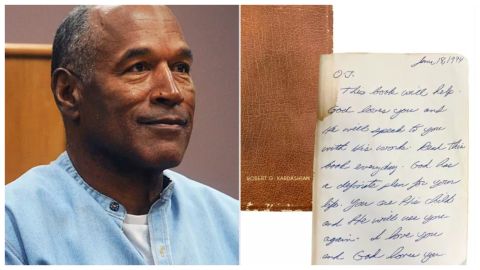 ROBERT G. KARDASHIAN
June 18, 1994
O.J.
This book will help.
God loves you and
He will speak to you
with His work. Read this
book everyday. God has
a definite plan for your
life. You are His child
and He will use you
again. I love you
and God loves you